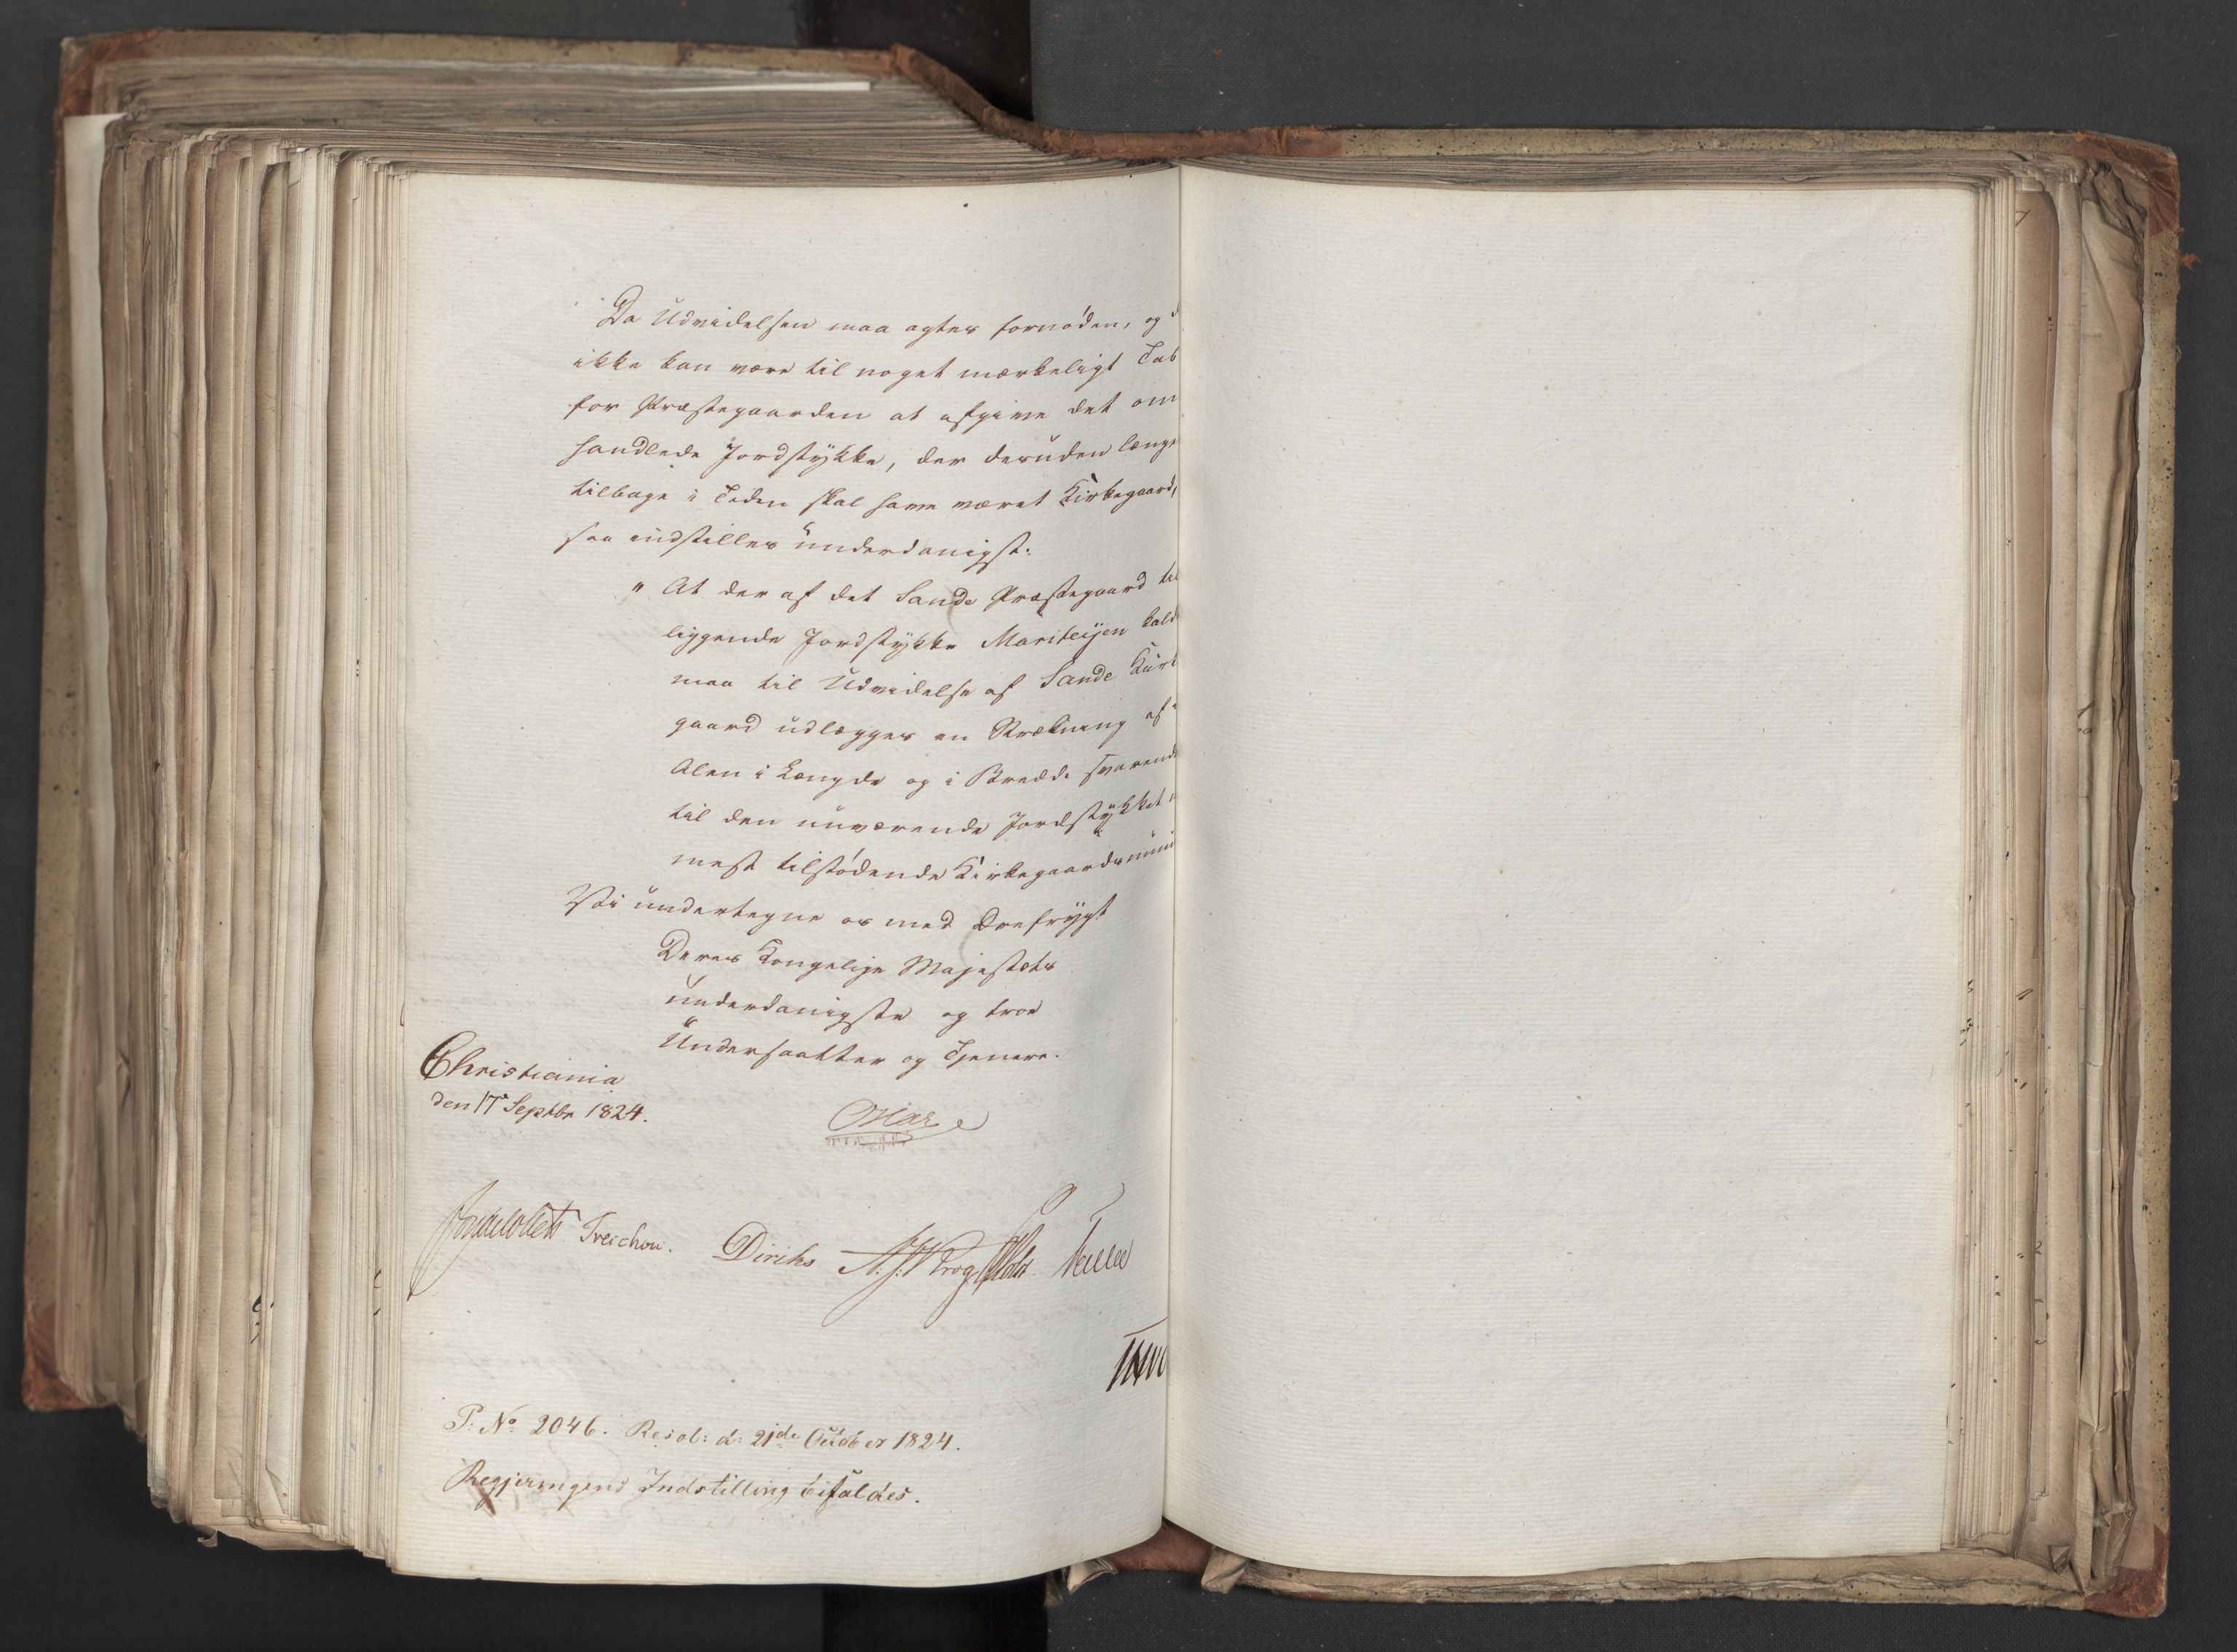 Da Udvidelsen maa agtes fornøden, og d
ikke kan være til noget mærkeligt Tab
for Præstegaarden at afgive det om
handlede Jordstykke, der desuden længe
tilbage i Tiden skal have været Kirkegaard,
saa indstilles underdanigst:
" At der af det Sande Præstegaard til
liggende Jordstykke Marileijen kald
maa til Udvidelse af Sande Kirk
gaard udlægges en Strækning af
Alen i Længde og i Bredde svarende
til den nuværende Jordstykket n
mest tilstødende Kirkegaardsmuur
Vi undertegne os med Ærefrygt
Deres Kongelige Majestæts
underdanigste og troe
Undersaatter og Tjenere.
Christiania
den 17 Septbr 1824.
Treschow. Diriks
P: No 2046. Resol: d: 21de October 1824.
Regjeringens Indstilling bifaldes.